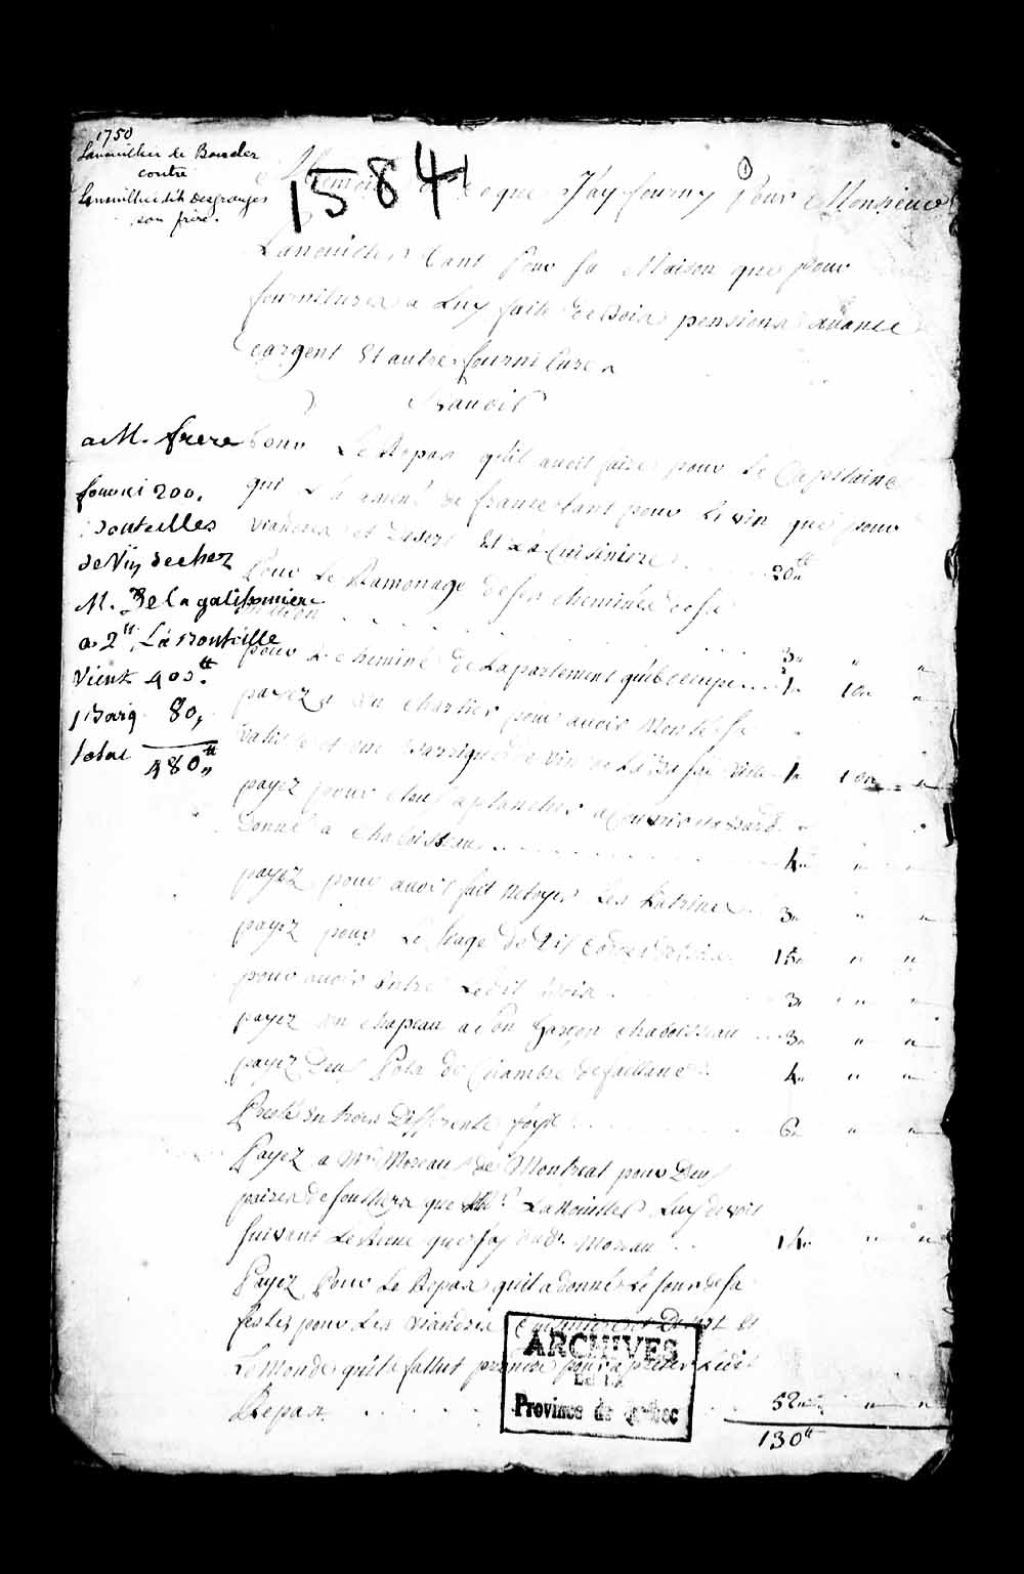 1750
Lanouillier de Boucler
contre
Lanouillier dit Desgranges
son frère.
1584
1
Memoire de ce que J'ay fourny Pour Monsieur
Lanouillier tant Pour sa Maison que pour
fournitures a Luy faite de Bois pensions avance
d'argent Et autres fournitures
Scavoir
Pour Le Repas qu'il avoit faire pour Le Capitaine
qui L'a amené de france tant pour Le vin que pour
viandes et Desert Et La Cuisiniere 20
Pour Le Ramonage de ses cheminée de sa
3
pour La cheminé de Lapartement qu'il occupe 1 10
payez a un chartier pour avoir Monté sa
valise et une Barrique de vin de La Basse ville 1 10
payez pour
Donné a Chaboisseau 4
payez pour avoir fait netoyer Les Latrines 3
payez pour Le siage de Dit 15
pour avoir Entré Ledit Bois 3
payez un chapeau a son Garçon chaboisseau 3
payez Deux Pots de Chambre de faillance 4
Presté en trois Differente foye 6
Payez a Mr Moreau de Montreal pour Deux
paires de soulliers que Mr Lanouillier Luy devoit
suivant Le Reçue que j'ay dudt Moreau 14
Payez Pour Le Repas qu'il a donné Le jour de sa
feste, pour Les viandes Cuisinierent Desert Et
Le Monde qu'il a fallut prandre pour apreter Ledit
Repas 52
130tt
a M. frere
fourni 200.
Bouteilles
de Vin de chez
M. De la galissonniere
a 2tt La Bouteille
Vient 400tt
1 Bariq 80
total 480tt
ARCHIVES
DE LA
Province de Québec